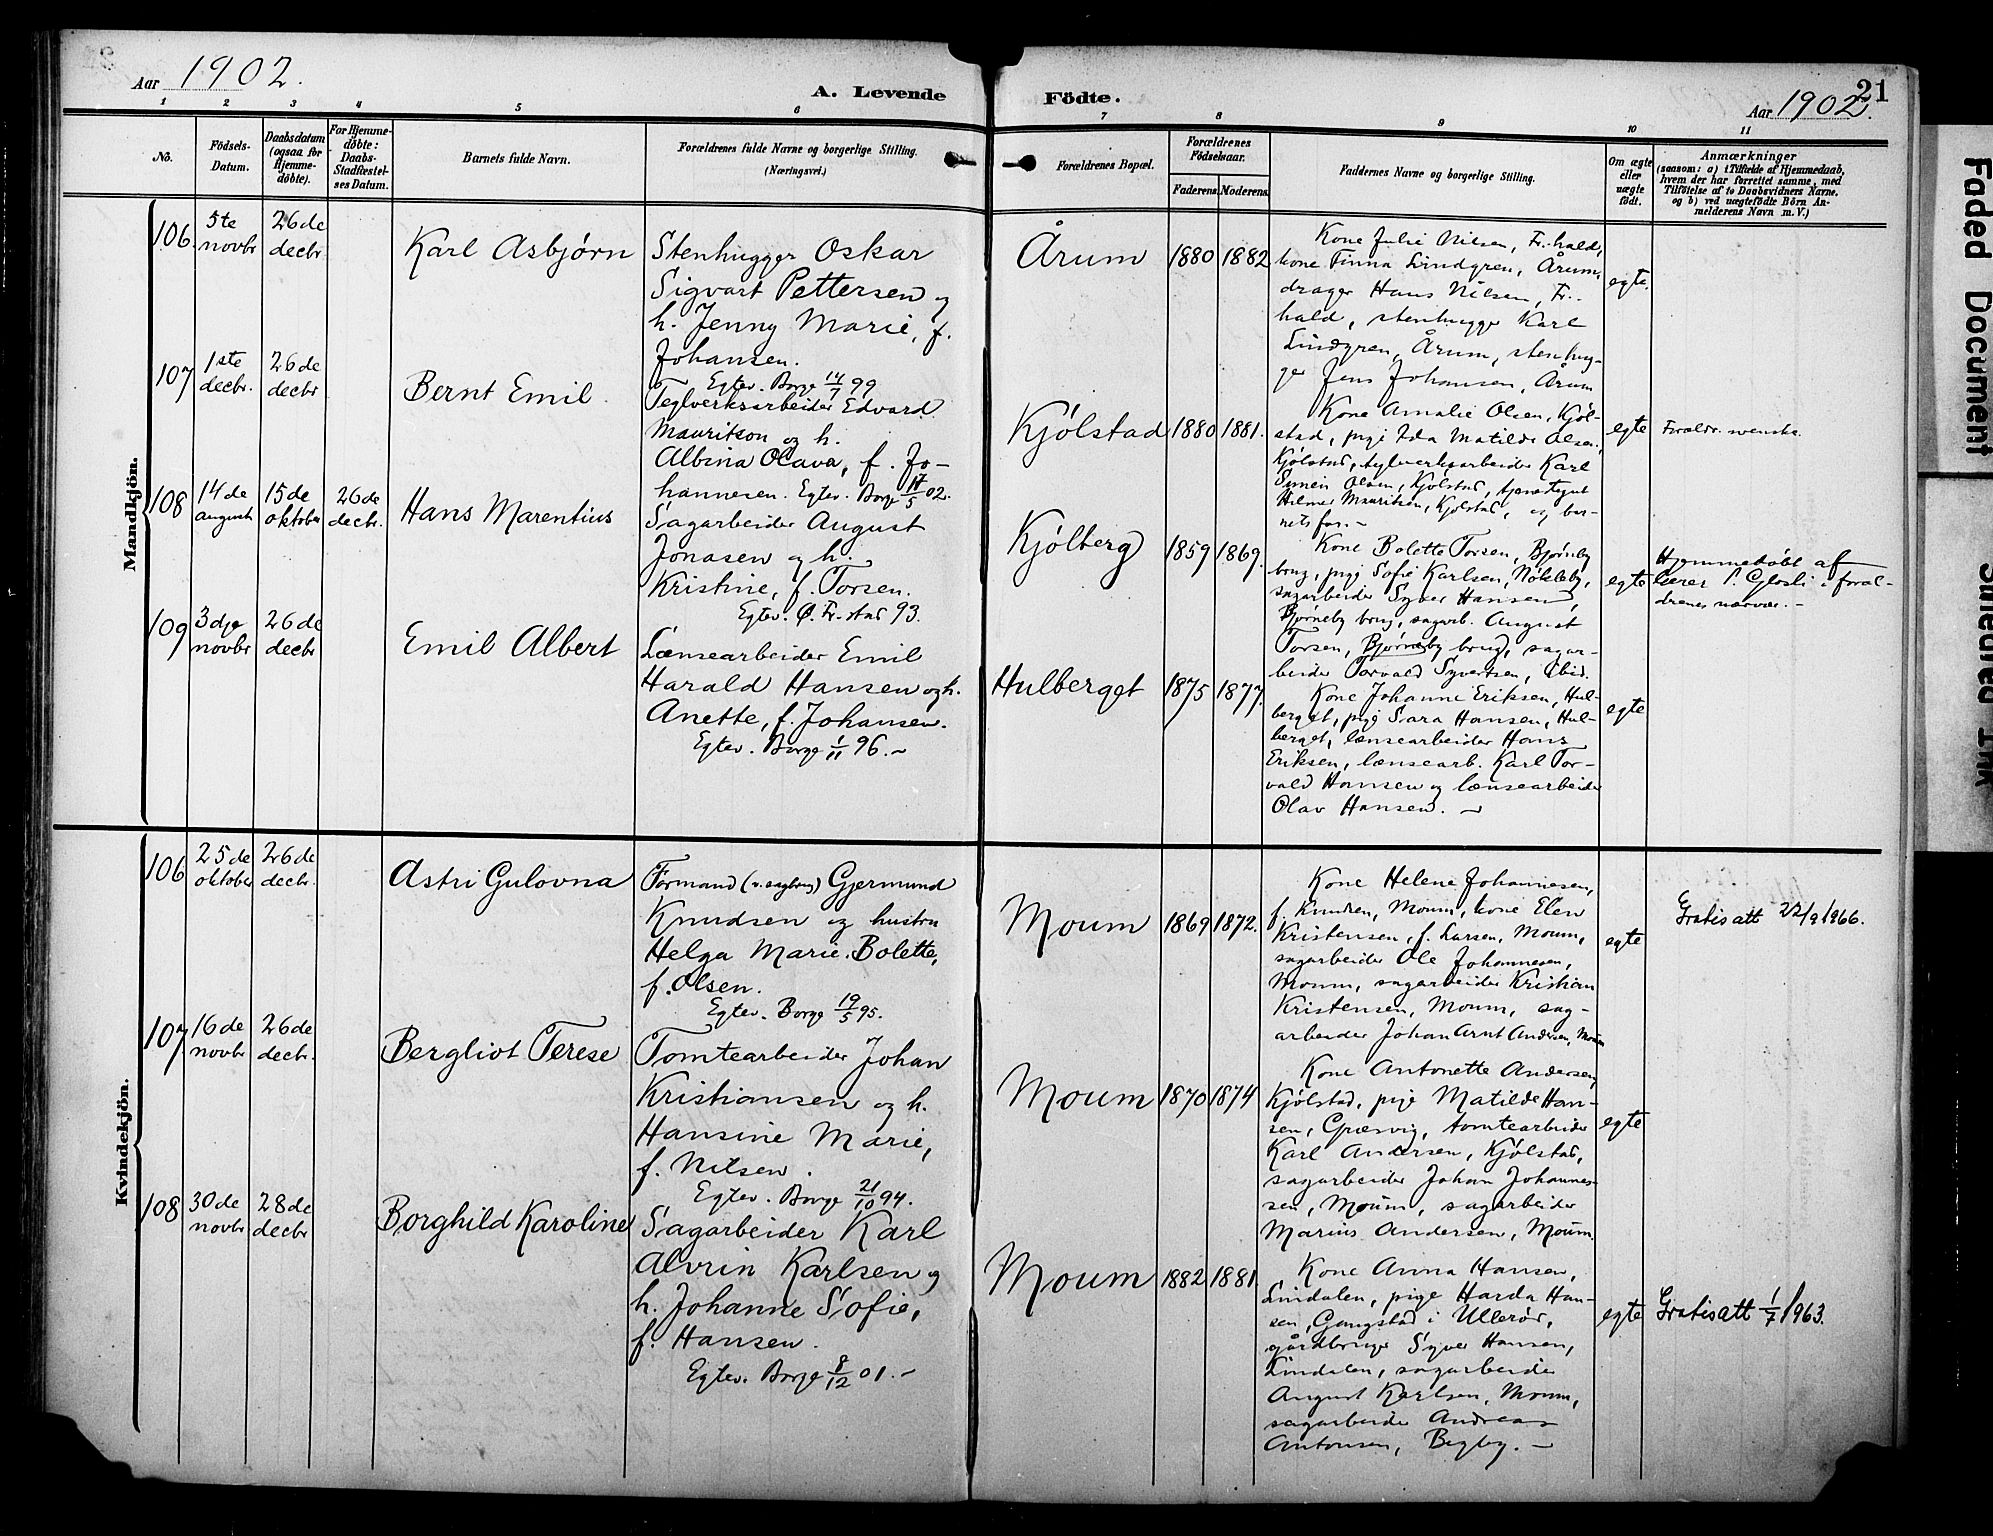 Aar 1902.
A. Levende Födte.
Aar 1902.
21
1 2 3 4 5 6 7 8 9 10 11
No.
Födsels-Datum.
Daabsdatum (ogsaa for Hjemme-döbte).
For Hjemme-döbte: Daabs-Stadfæstel-ses Datum.
Barnets fulde Navn.
Forældrenes fulde Navne og borgerlige Stilling.
(Næringsvei.)
Forældrenes Bopæl.
Forældrenes Födselsaar.
Faderens. Moderens.
Faddernes Navne og borgerlige Stilling.
Om ægte eller uægte födt.
Anmærkninger
(saasom: a) i Tilfælde af Hjemmedaab,
hvem der har forrettet samme, med
Tilföielse af to Daabsvidners Navne,
og b) ved uægtefödte Börn An-
melderens Navn m. V.)
Mandkjön.
106. 5te novbr 26de decbr Karl Asbjørn
Stenhugger Oskar
Sigvart Pettersen og
h. Jenny Marie, f.
Johansen.
Egtev. Borge 14/7 99
Årum 1880 1882
Kone Julie Nilsen, Fr.hald,
kone Finna Lindgren, Årum,
drager Hans Nilsen, Fr.-
hald, stenhugge Karl
Lindgren, Årum, stenhug-
ger Jens Johansen, Årum
egte.
107 1ste decbr. 26de decbr Bernt Emil.
Teglverksarbeider Edvard
Mauritson og h.
Albina Olava, f. Jo-
hannesen. Egtev. Borge 17/5 02.
Kjølstad 1880 1881.
Kone Amalie Olsen, Kjøl-
stad, pige Ida Matilde Olsen,
Kjølstad, teglverksarbeider Karl
Simen Olsen, Kjølstad, tjenestegut
Hilmer Mauritsen, Kjølstad, og bar-
nets far. -
egte
Foreldr. svenske.
108 14de august 15de oktober 26de decbr. Hans Marentius
Sagarbeider August
Jonasen og h.
Kristine, f. Torsen.
Egtev. Ø. Fr.stad 93.
Kjølberg 1859 1869.
Kone Bolette Torsen, Bjørneby
brug, pige Sofie Karlsen, Nøkleby,
sagarbeider Syver Hansen,
Bjørneby brug, sagarb. August
Torsen, Bjørneby brug, sagar-
beider Torvald Syvertsen, ibid.
egte
Hjemmedøbt af
lærer P. Glosli i foræl-
drenes nærvær. -
109 3dje novbr 26de decbr Emil Albert
Lænsearbeider Emil
Harald Hansen og h.
Anette, f. Johansen.
Egtev. Borge 1/11 96. -
Hulberget 1875 1877.
Kone Johanne Eriksen, Hul-
berget, pige Sara Hansen, Hul-
berget, lænsearbeider Hans
Eriksen, lænsearb. Karl Tor-
vald Hansen og lænsearbeider
Olav Hansen. -
egte
Kvindekjön.
106 25de oktober 26de decbr. Astri Gulovna
Formand (v. sagbrug) Gjermund
Knudsen og hustru
Helga Marie Bolette,
f. Olsen.
Egtev. Borge 19/5 95.
Moum 1869 1872.
Kone Helene Johannesen,
f. Knudsen, Moum, kone Elen
Kristensen, f. Larsen, Moum,
sagarbeider Ole Johannesen,
Moum, sagarbeider Kristian
Kristensen, Moum, sag-
arbeider Johan Arnt Andersen, Moum
egte
Gratisatt 22/9 1966.
107 16de novbr 26de decbr. Bergliot Terese
Tomtearbeider Johan
Kristiansen og h.
Hansine Marie,
f. Nilsen.
Egtev. Borge 21/10 94.
Moum 1870 1874
Kone Antonette Andersen,
Kjølstad, pige Matilde Han-
sen, Græsvig, tomtearbeider
Karl Andersen, Kjølstad,
sagarbeider Johan Johannes-
sen, Moum, sagarbeider
Marius Andersen, Moum.
egte
108 30de novbr 28de decbr Borghild Karoline
Sagarbeider Karl
Alvrin Karlsen og
h. Johanne Sofie,
f. Hansen.
Egtev. Borge 8/12 01. -
Moum 1882 1881
Kone Anna Hansen,
Lindalen, pige Harda Han-
sen, Gangstad i Ullerør,
gårdbruger Syver Hansen,
Lindalen, sagarbeider
August Karlsen, Moum,
sagarbeider Andreas
Antonsen, Begby. -
egte
Gratisatt 1/7 1963.
Faded Document
Smeared Ink